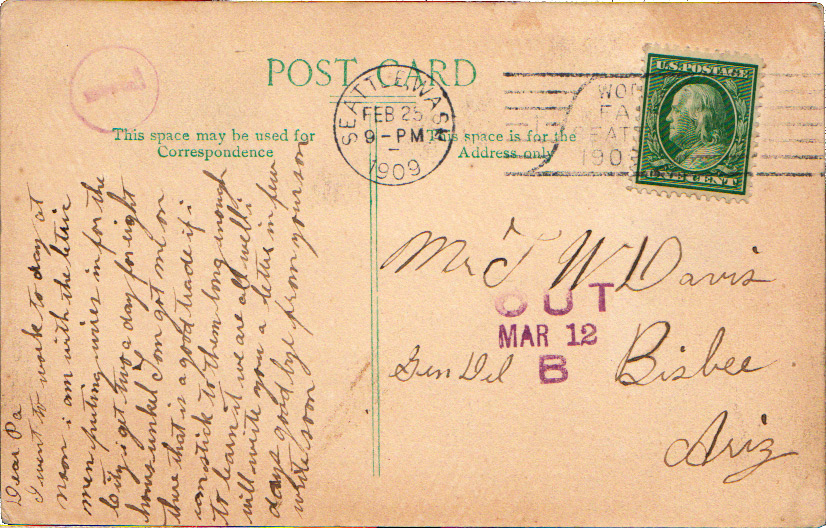 POST CARD
This space may be used for
Correspondence
This space is for the
Address only
SEATTLE, WASH
FEB 25
9-PM
1909
WOR
FA
SEAT
190
U.S. POSTAGE
ONE CENT
1
Mr T W Davis
OUT
MAR 12
B
Gen Del Bisbee
Ariz
Dear Pa
I went to work to day at
noon i am with the letric
men puting wires in for the
City i get two a day for eight
hours unkel Tom got me on
there that is a good trade if i
can stick to them long enough
to learn it we are all well i
will write you a letter in few
days good bye from your son
write soon